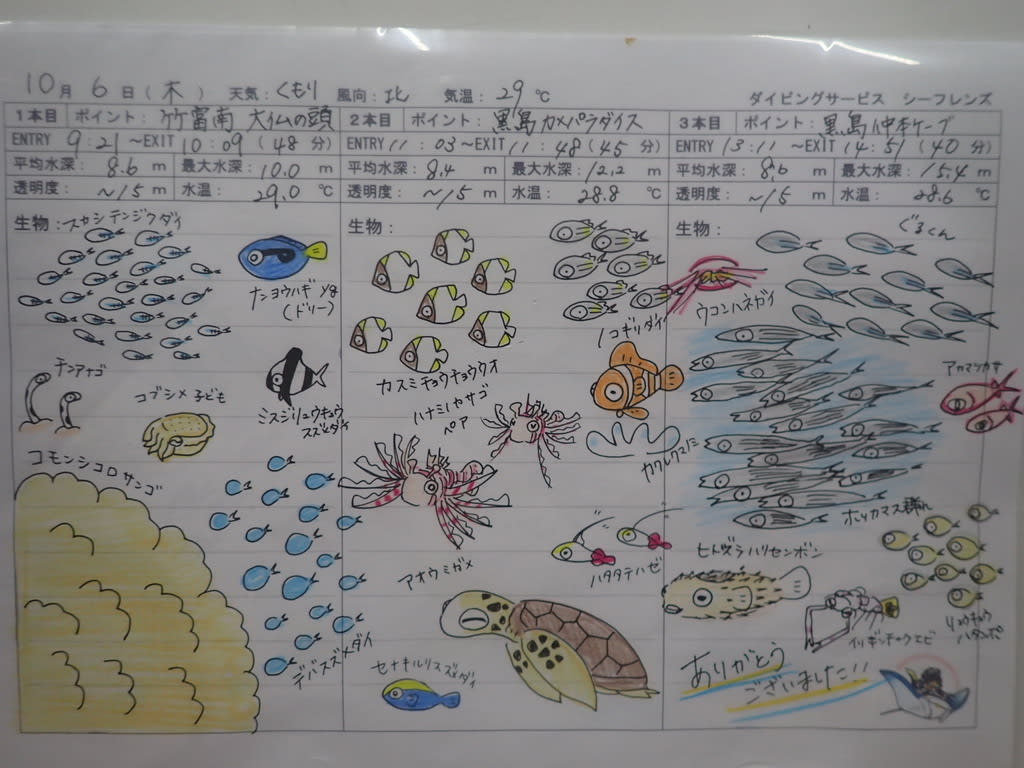 10月 6日(木) 天気:くもり 風向:北 気温:29℃
ダイビングサービス シーフレンズ
1本目 ポイント:竹富南 大仏の頭
ENTRY 9:21~EXIT 10:09(48分)
平均水深:8.6 m 最大水深:10.0 m
透明度:~15 m 水温:29.0 ℃
生物:スカシテンジクダイ
ナンヨウハギ yg
(ドリー)
チンアナゴ
コブシメ 子ども
ミスジリュウキュウ
スズメダイ
コモンシコロサンゴ
デバスズメダイ
2本目 ポイント:黒島 カメパラダイス
ENTRY 11:03~EXIT 11:48(45分)
平均水深:8.4 m 最大水深:12.2 m
透明度:~15 m 水温:28.8 ℃
生物:
ノコギリダイ
カスミチョウチョウウオ
ハナミノカサゴ
ペア
カクレクマノミ
ハタタテハゼ
アオウミガメ
セナキルリスズメダイ
3本目 ポイント:黒島 仲本ケーブ
ENTRY 13:11~EXIT 14:51(40分)
平均水深:8.6 m 最大水深:15.4 m
透明度:~15 m 水温:28.6 ℃
生物:
ぐるくん
ウコンハネガイ
アカマツカサ
ホソカマス群れ
ヒトヅラハリセンボン
リュウキュウ
ハタンポ
イソギンチャクエビ
ありがとう
ございました!!